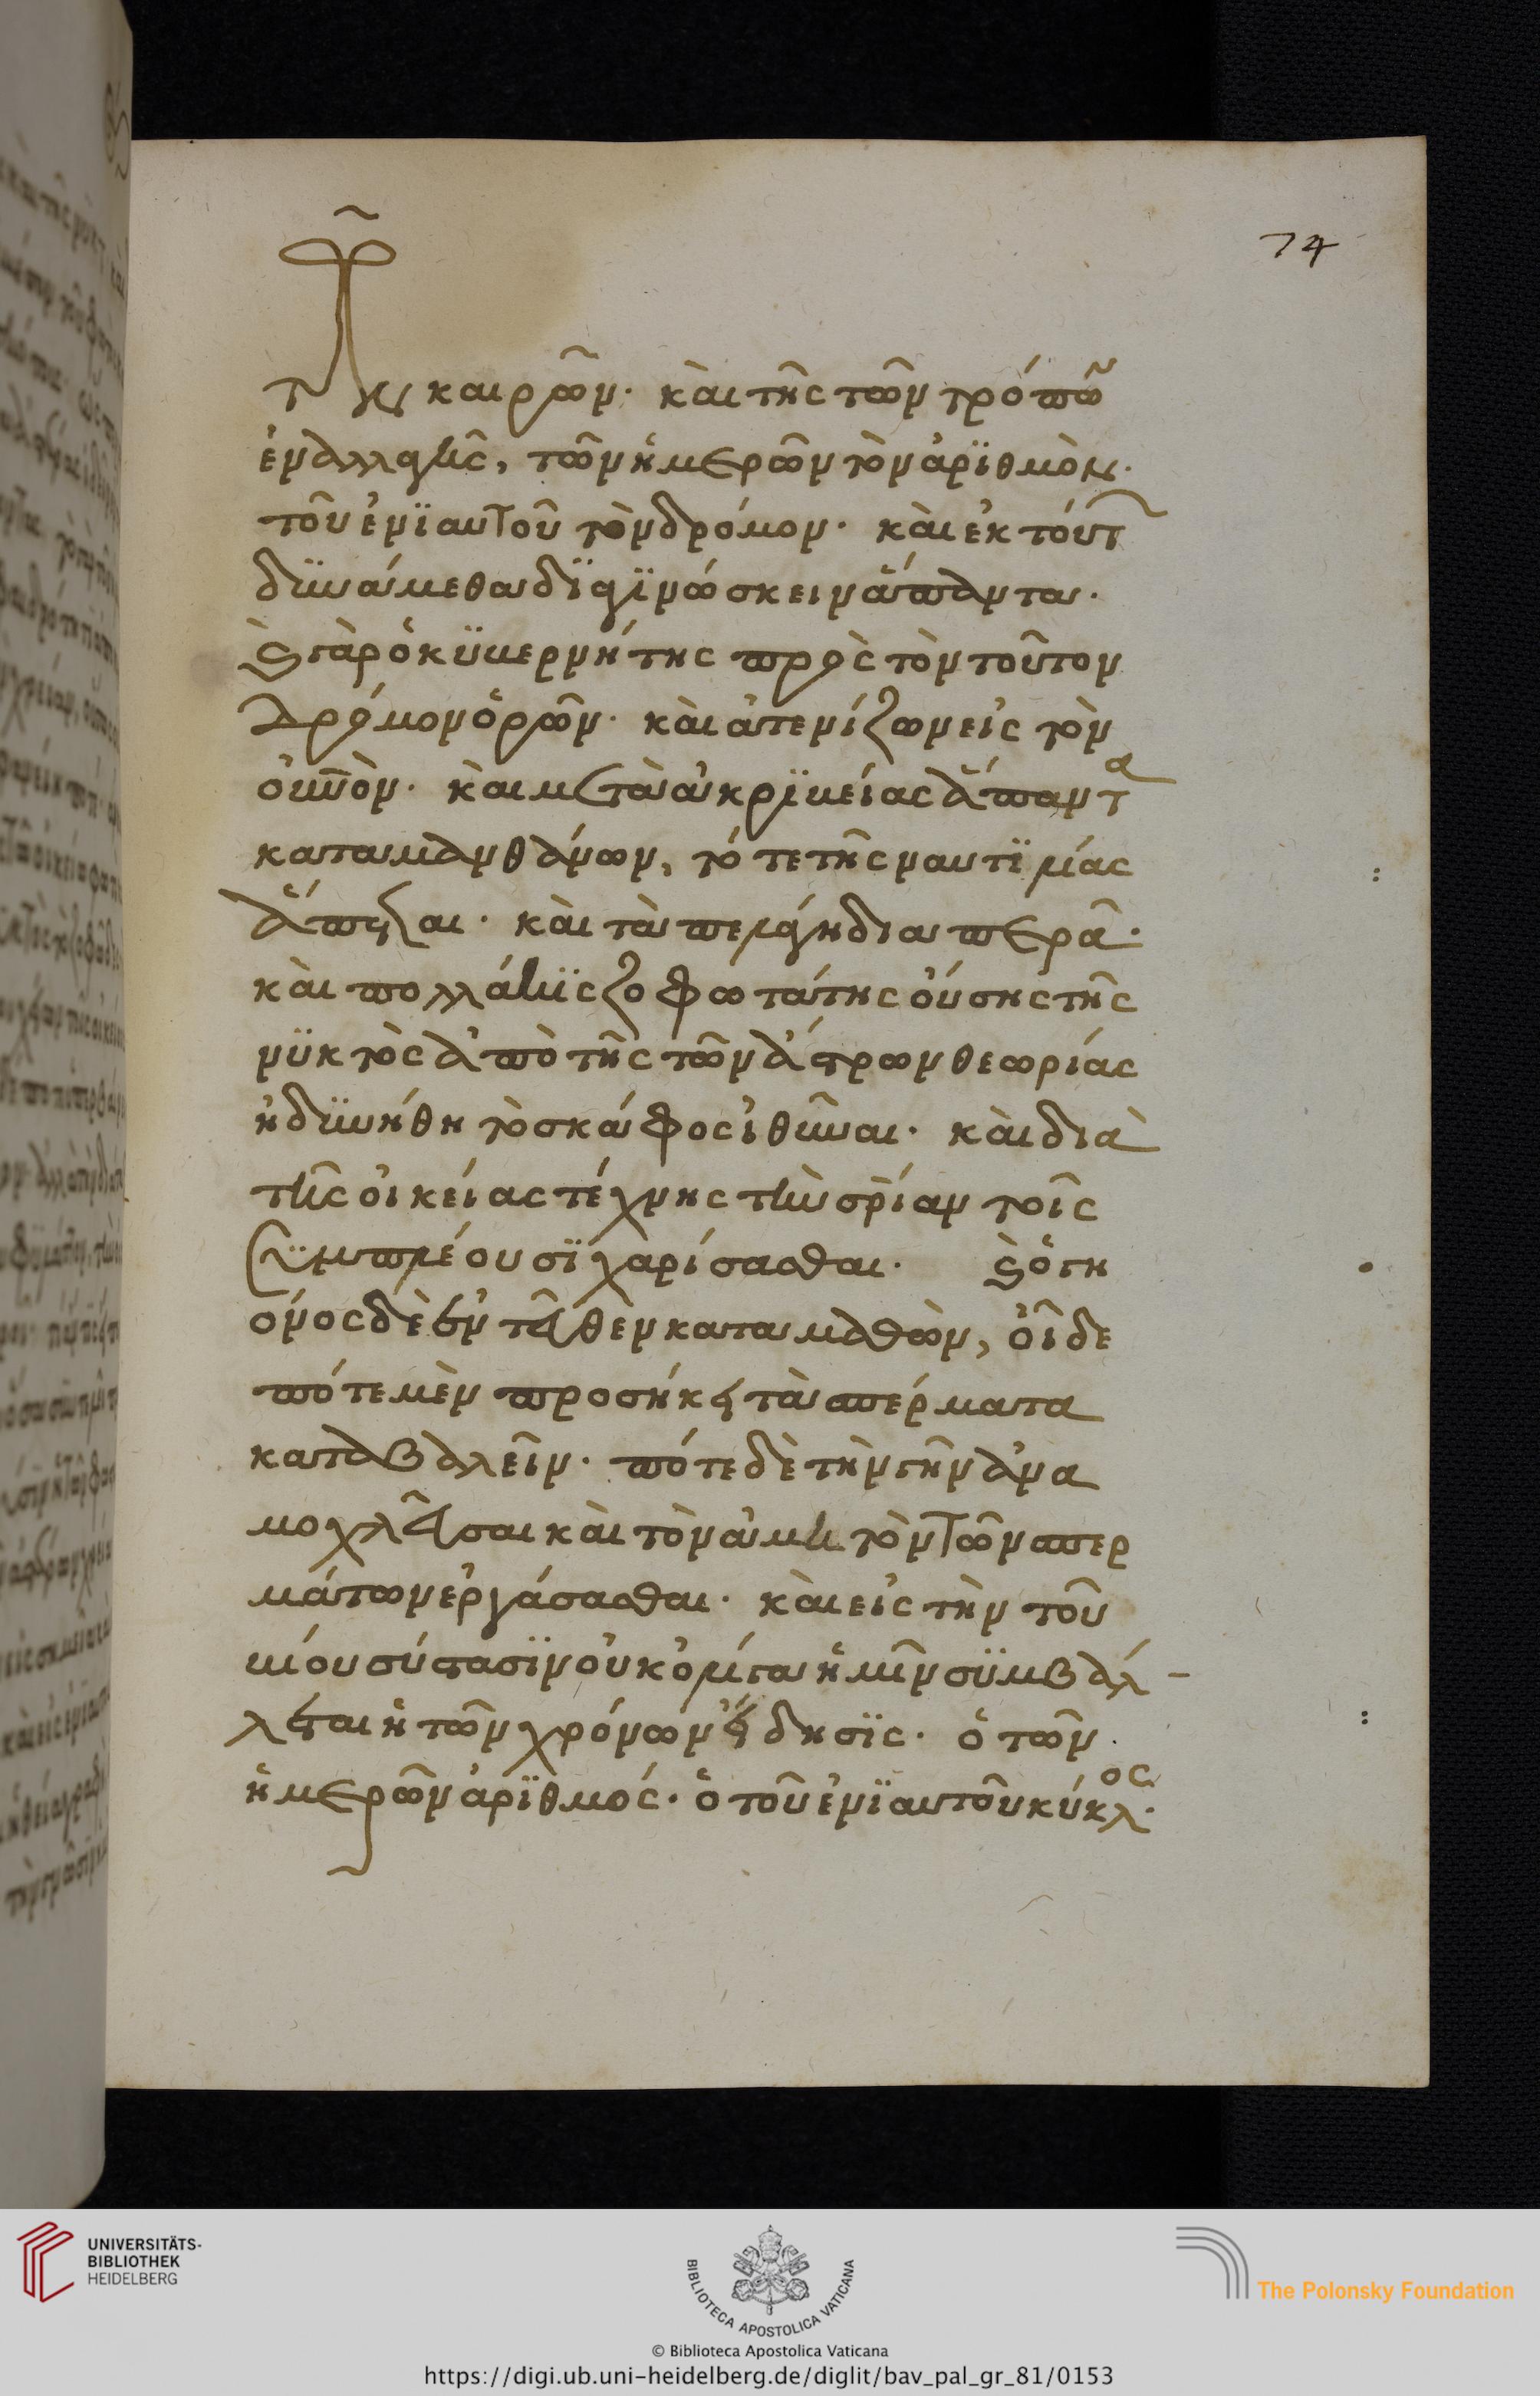 74
τῶν καιρῶν· καὶ τῆς τῶν τρόπῶ
ἐναλλαγῆς, τῶν ἡμερῶν τὸν ἀρϊθμὸν·
τοῦ ἐνϊαυτοῦ τὸν δρόμον· καὶ ἐκ τούτ
δϋνάμεθα δϊαγϊνώσκειν ἅπαντα·
καὶ γὰρ ὁ κϋβερνήτης πρὸς τὸν τοῦτον
δρόμον ὁρῶν· καὶ ἀτενίζων εἰς τὸν
οὐνὸν· καὶ μετὰ ἀκρϊβείας ἅπαντα
καταμανθάνων, τό τε τῆς ναυτϊλίας
ἅπτεται· καὶ τὰ πελάγη διαπερᾶ·
καὶ πολλάκϊς ζοφωτάτης οὔσης τῆς
νϋκτὸς ἀπὸ τῆς τῶν ἄστρων θεωρίας
ἠδϋνήθη τὸ σκάφος ἰθῦναι· καὶ διὰ
τῆς οἰκείας τέχνης τὴν σρίαν τοῖς
σϋμπλέουσϊ χαρίσασθαι· καὶ ὁ γη
όνος δὲ ἐντεῦθεν καταμαθὼν, οἶδε
πότε μὲν προσήκει τὰ σπέρματα
καταβαλεῖν· πότε δὲ τὴν γῆν ἀνα
μοχλεῦσαι καὶ τὸν ἀμητὸν τῶν σπερ
μάτων ἐργάσασθαι· καὶ εἰς τὴν τοῦ
βίου σύστασϊν οὐκ ὀλίγα ἡμῖν σϋμβάλ
λεται ἡ τῶν χρόνων εἴδησϊς· ὁ τῶν
ἡμερῶν ἀρϊθμός· ὁ τοῦ ἐνϊαυτοῦ κύκλος·
UNIVERSITÄTS-
BIBLIOTHEK
HEIDELBERG
BIBLIOTECA APOSTOLICA VATICANA
© Biblioteca Apostolica Vaticana
The Polonsky Foundation
https://digi.ub.uni-heidelberg.de/diglit/bav_pal_gr_81/0153